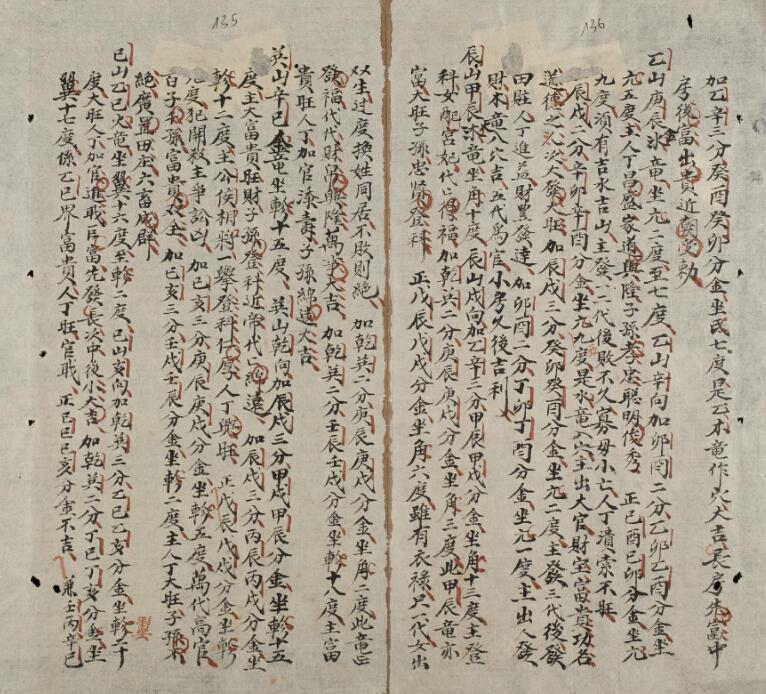 136
加乙辛三分癸酉癸卯分金坐氐七度是乙木竜作穴大吉長房先富中
房後富出貴近朝受勅
乙山庚辰氷金竜坐亢二度至七度乙山辛向加卯酉二分乙卯乙酉分金坐
亢五度主人丁昌盛家道興隆子孫孝忠聰明俊秀 正己酉己卯分金坐亢
九度須有吉水吉山主發一二代後敗不久寡母小亡人丁消索不旺
辰戌二分辛卯辛酉分金坐亢九度是水竜入穴主出大官財宝富貴功名
道德之人次大發大旺加辰戌三分癸卯癸酉分金坐亢二度主發三代後發
田庄人丁進益財豊發達 加卯酉二分丁卯丁酉分金坐亢一度主出人發
財木竜八穴吉五代為官小房久後吉利
辰山甲辰氷竜坐角十度辰山戌向加乙辛三分甲辰甲戌分金坐角十三度主登
科女配宮妃代代得福加乾巽二分庚辰庚戌分金坐角三度此甲辰竜亦
富大旺子孫忠賢登科 正戊辰戊戌分金坐角六度雖有衣祿只一代女出
135
双生过度換姓同居不敗則絶 加乾巽二分庚辰庚戌分金坐角二度此竜出
發福代代財帛興隆萬事大吉 加乾巽二分壬辰壬戌分金坐軫十八度主富
貴旺人丁加官添壽子孫綿遠大吉
巽山辛巳金竜坐軫十五度 巽山乾向加辰戌三分甲戌甲辰分金坐軫十五
度主大富貴旺財子孫登科近帝代代綿遠 加辰戌三分丙辰丙戌分金坐
軫十二度主公侯相將一舉發科仕厚人丁興旺 正戊辰戊戌分金坐軫
九度犯関殺主爭訟凶 加己亥三分庚辰庚戌分金坐軫五度萬代高官
百子千孫富貴双全 加己亥三分壬戌壬辰分金坐軫二度主人丁大旺子孫不
絶廣置田庄六畜成群
巳山乙巳火竜坐翼十六度至軫二度巳山亥向加乾巽三分乙巳乙亥分金坐軫二十
度大旺人丁加官進職長房先發長次中後小大吉 加乾巽二分丁巳丁亥分金坐
翼十七度係乙巳界富貴人丁旺官职 正己巳己亥分金不吉 兼壬丙辛巳
翼